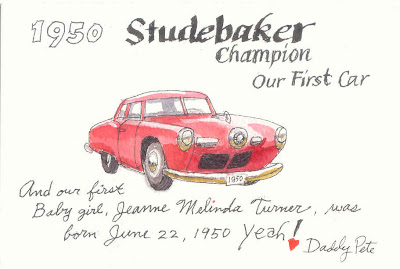 1950 Studebaker
Champion
Our First Car
1950
And our first
Baby girl, Jeanne Melinda Turner, was
born June 22, 1950 Yeah!
Daddy Pete